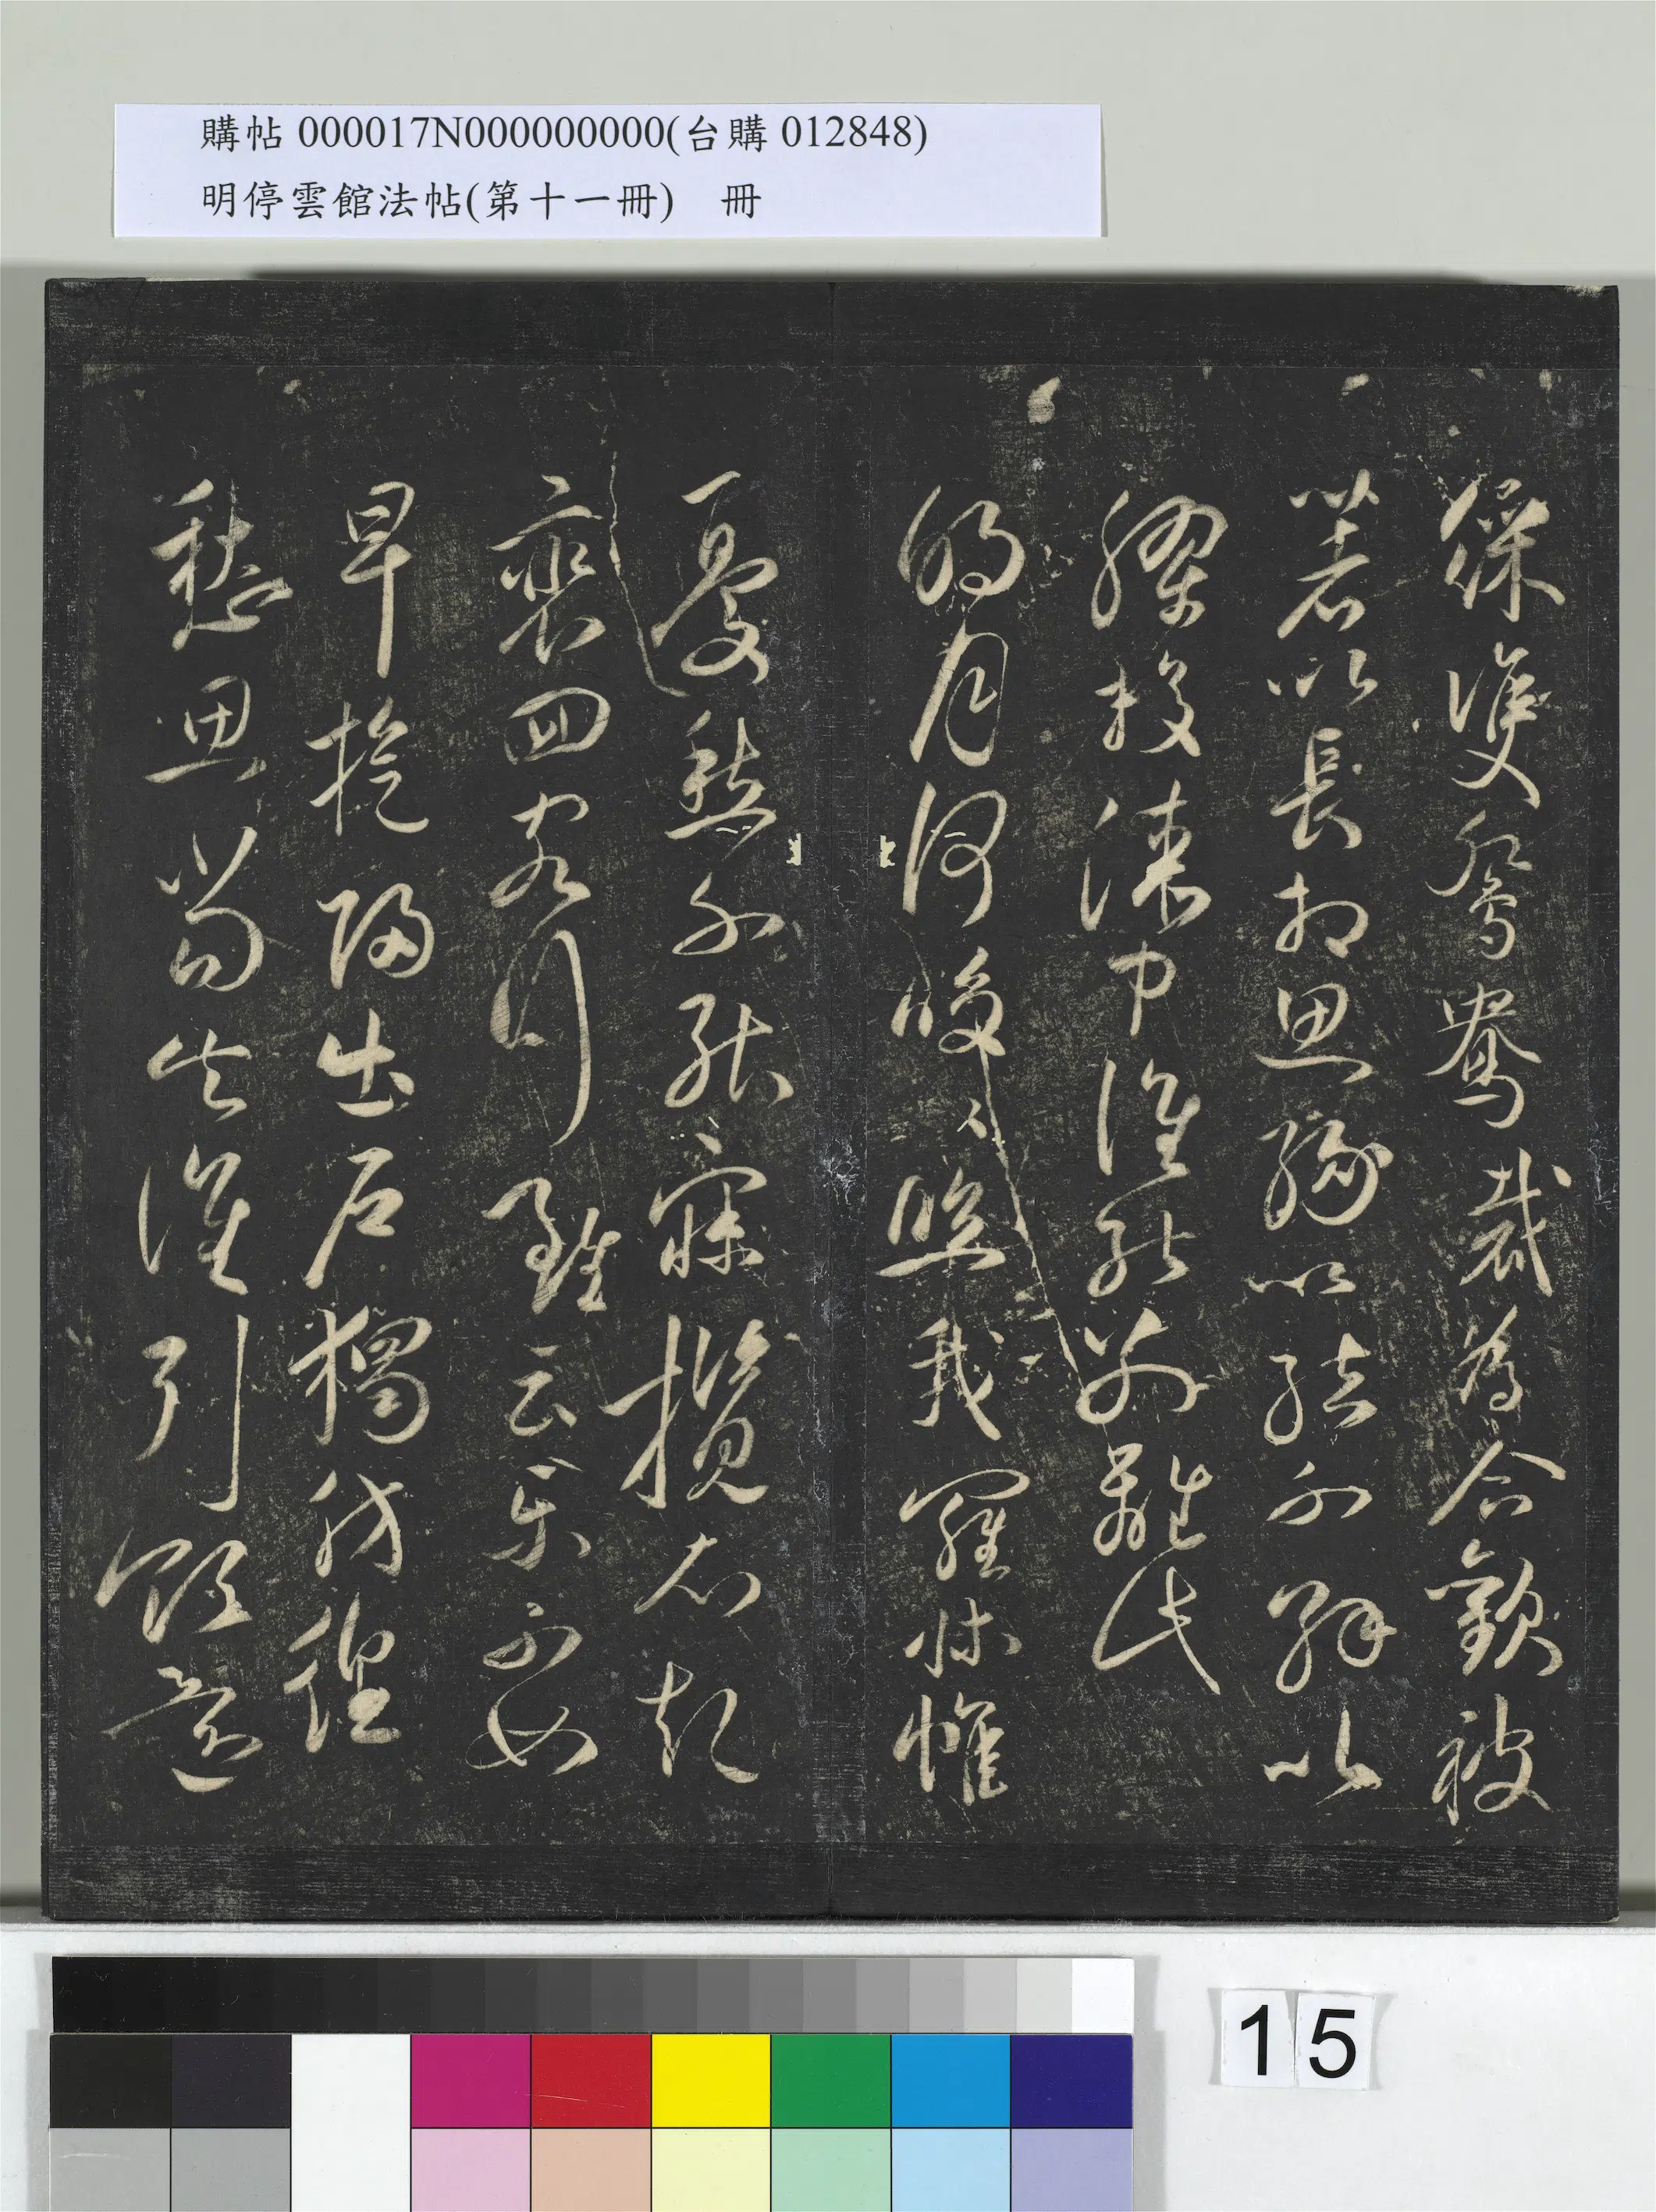 購帖 000017N000000000(台購 012848)
明停雲館法帖(第十一冊)　冊
綵雙鴛鴦裁為合歡被
著以長相思緣以結不解以
膠投漆中誰能別離此
明月何皎〻照我羅床帷
憂愁不能寐攬衣起
裵回客行雖云樂不如
早旋歸出戶獨彷徨
愁思當告誰引領還
15